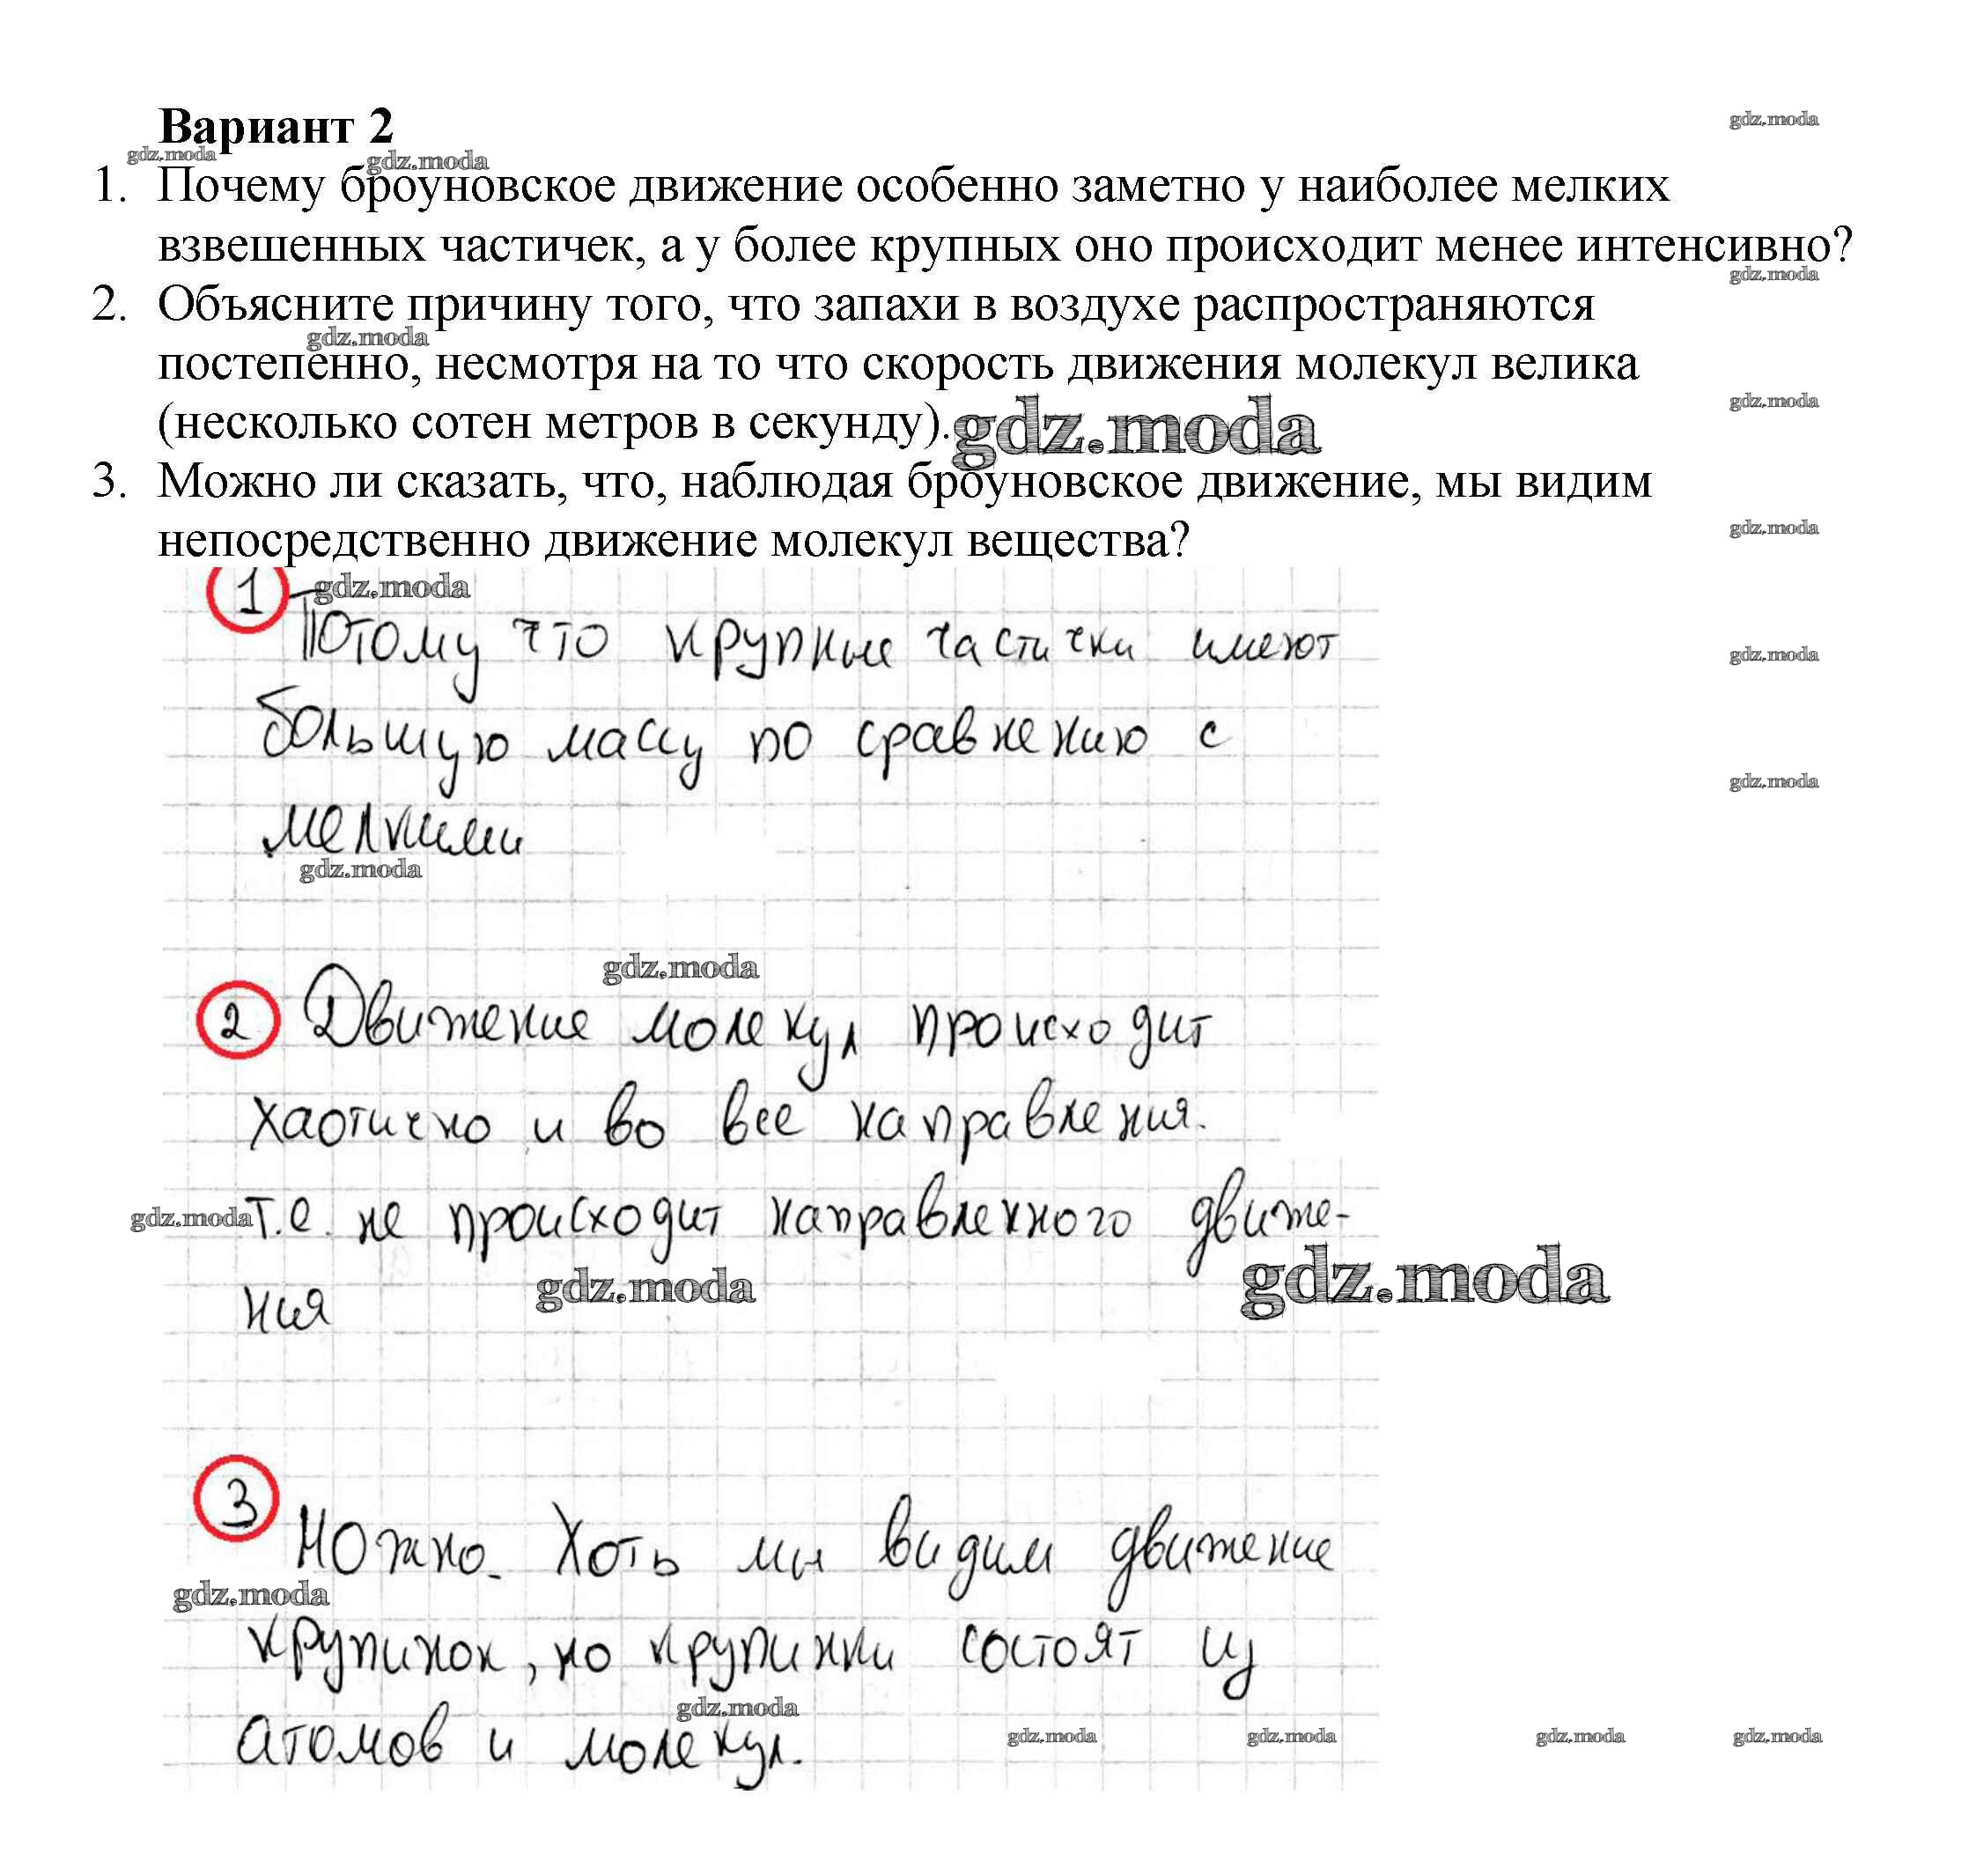 Вариант 2
gdz.moda
gdz.moda gdz.moda
1. Почему броуновское движение особенно заметно у наиболее мелких
взвешенных частичек, а у более крупных оно происходит менее интенсивно?
gdz.moda
2. Объясните причину того, что запахи в воздухе распространяются
gdz.moda
постепенно, несмотря на то что скорость движения молекул велика
gdz.moda
(несколько сотен метров в секунду). gdz.moda
3. Можно ли сказать, что, наблюдая броуновское движение, мы видим
gdz.moda
непосредственно движение молекул вещества?
1 gdz.moda
Потому что крупные частички имеют
gdz.moda
большую массу по сравнению с
gdz.moda
мелкими
gdz.moda
gdz.moda
2 Движение молекул происходит
хаотично и во все направления.
gdz.moda т.е. не происходит направленного движе-
gdz.moda gdz.moda
ния
3 Можно. Хоть мы видим движение
gdz.moda
крупинок, но крупинки состоят из
gdz.moda
атомов и молекул.
gdz.moda gdz.moda gdz.moda gdz.moda